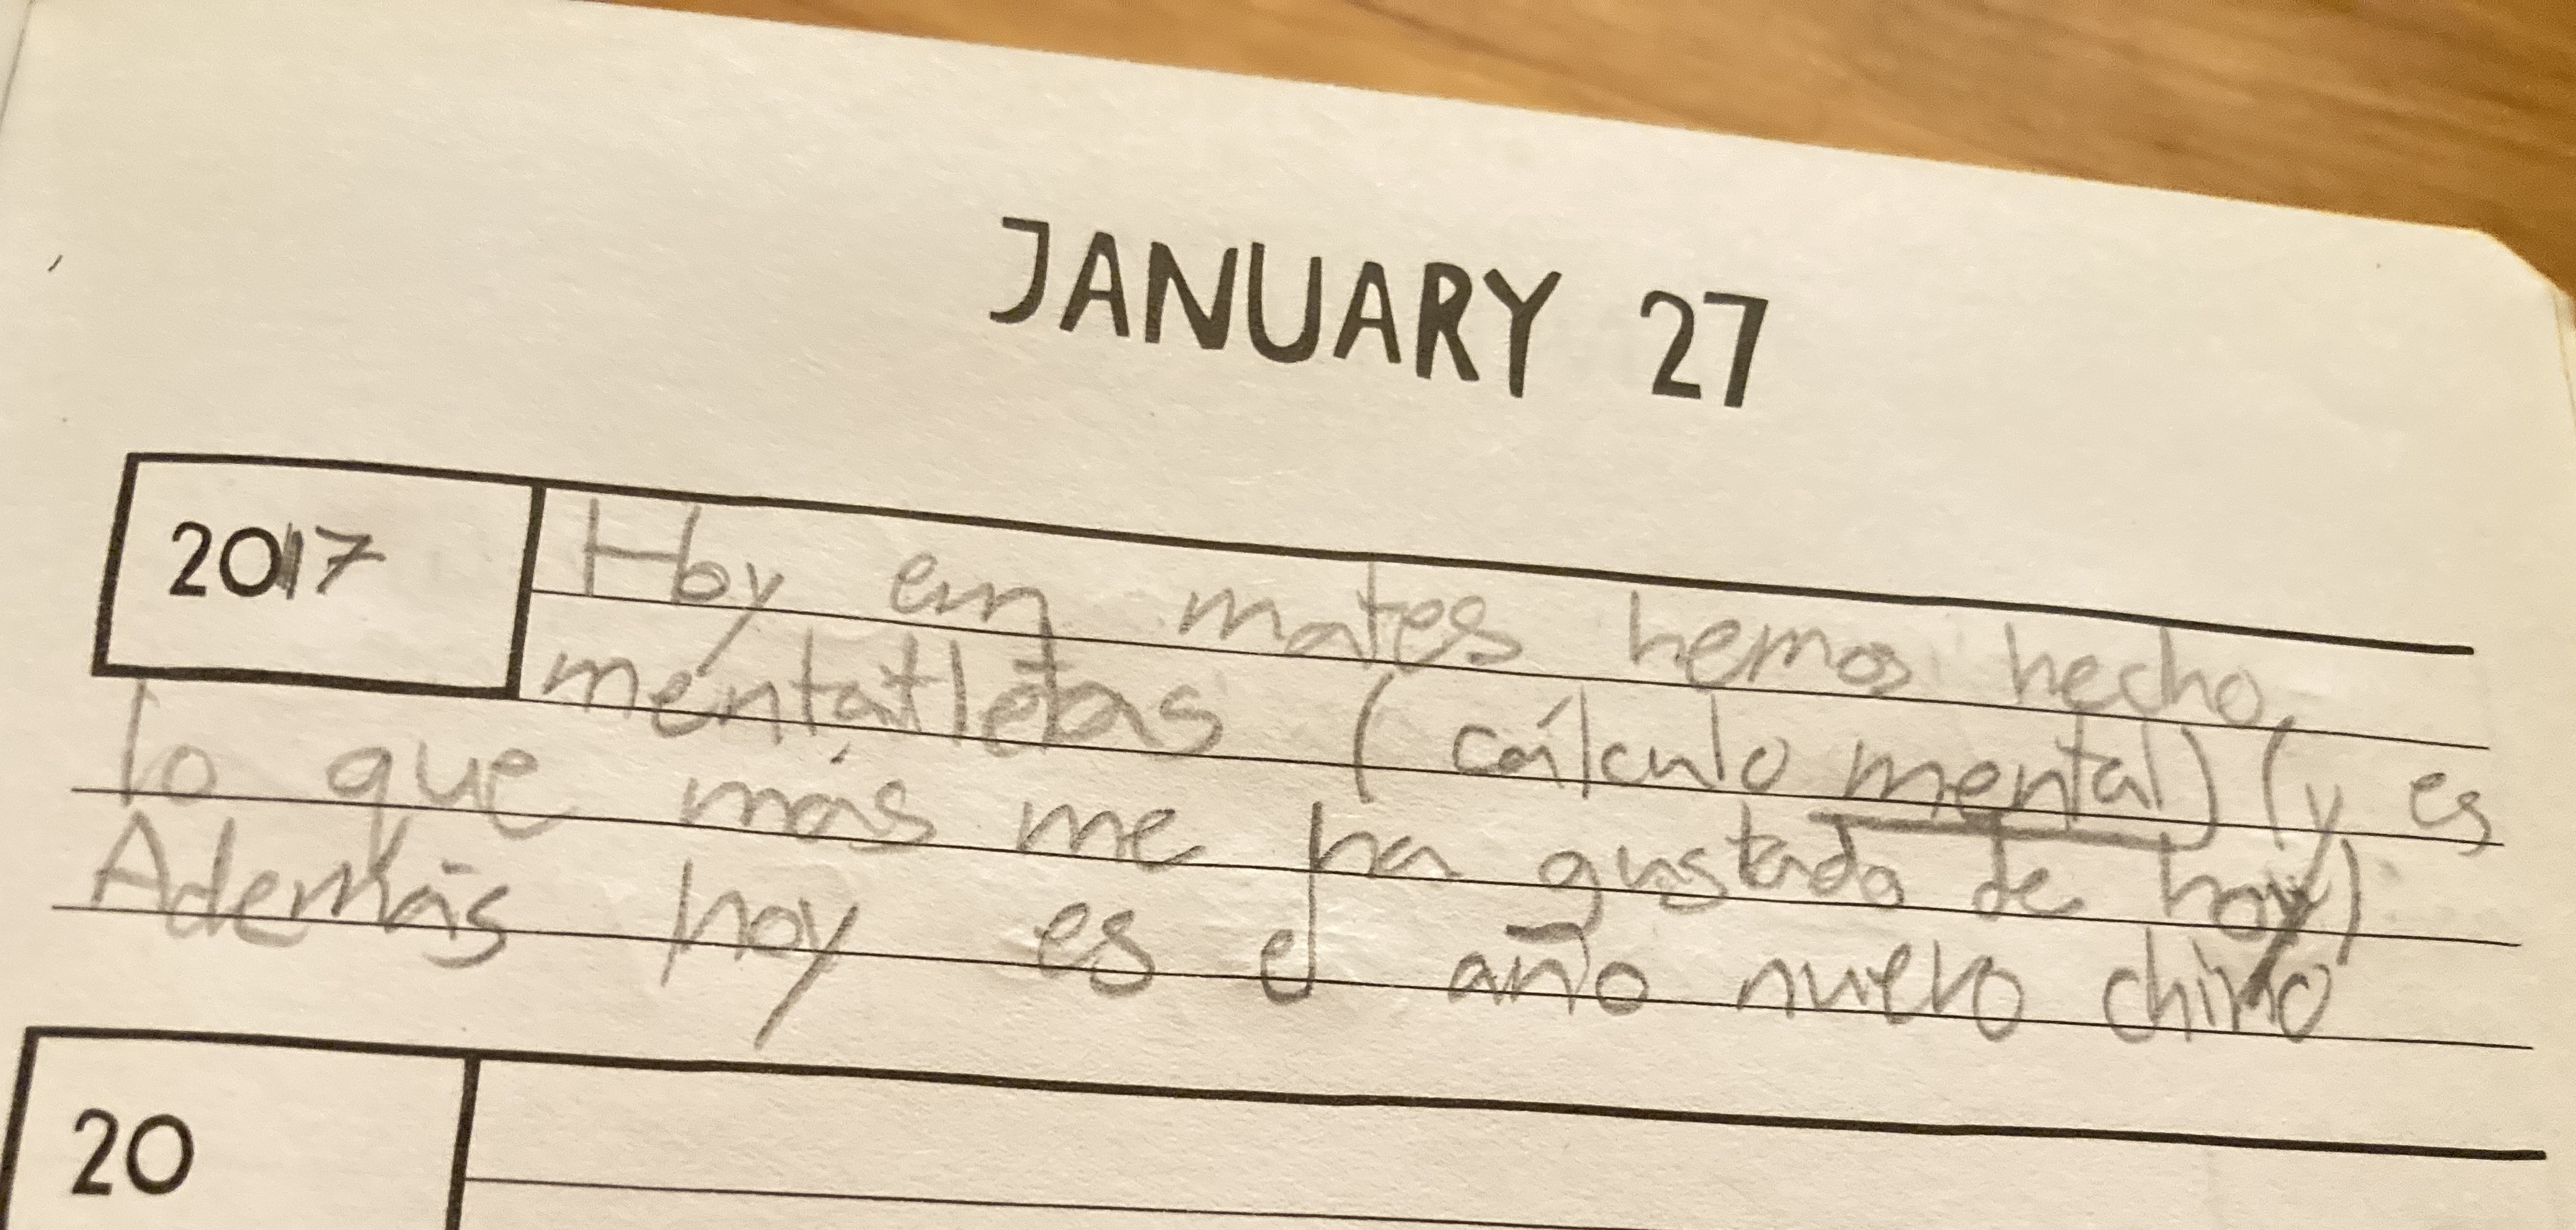 JANUARY 27
2017 Hoy en mates hemos hecho
mentatletas (cálculo mental) (y es
lo que más me ha gustado de hoy)
Además hoy es el año nuevo chino
20